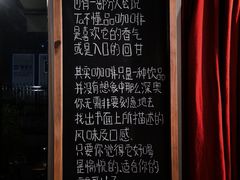 也有一部分人会说
To不懂品咖啡
是喜欢它的香气
或是入口的回甘
其实咖啡只是一种饮品
并没有想象中那么深奥
你无需非要刻意地去
找出书面上所描述的
风味及口感
只要你觉得它好喝
是愉悦的,适合你的